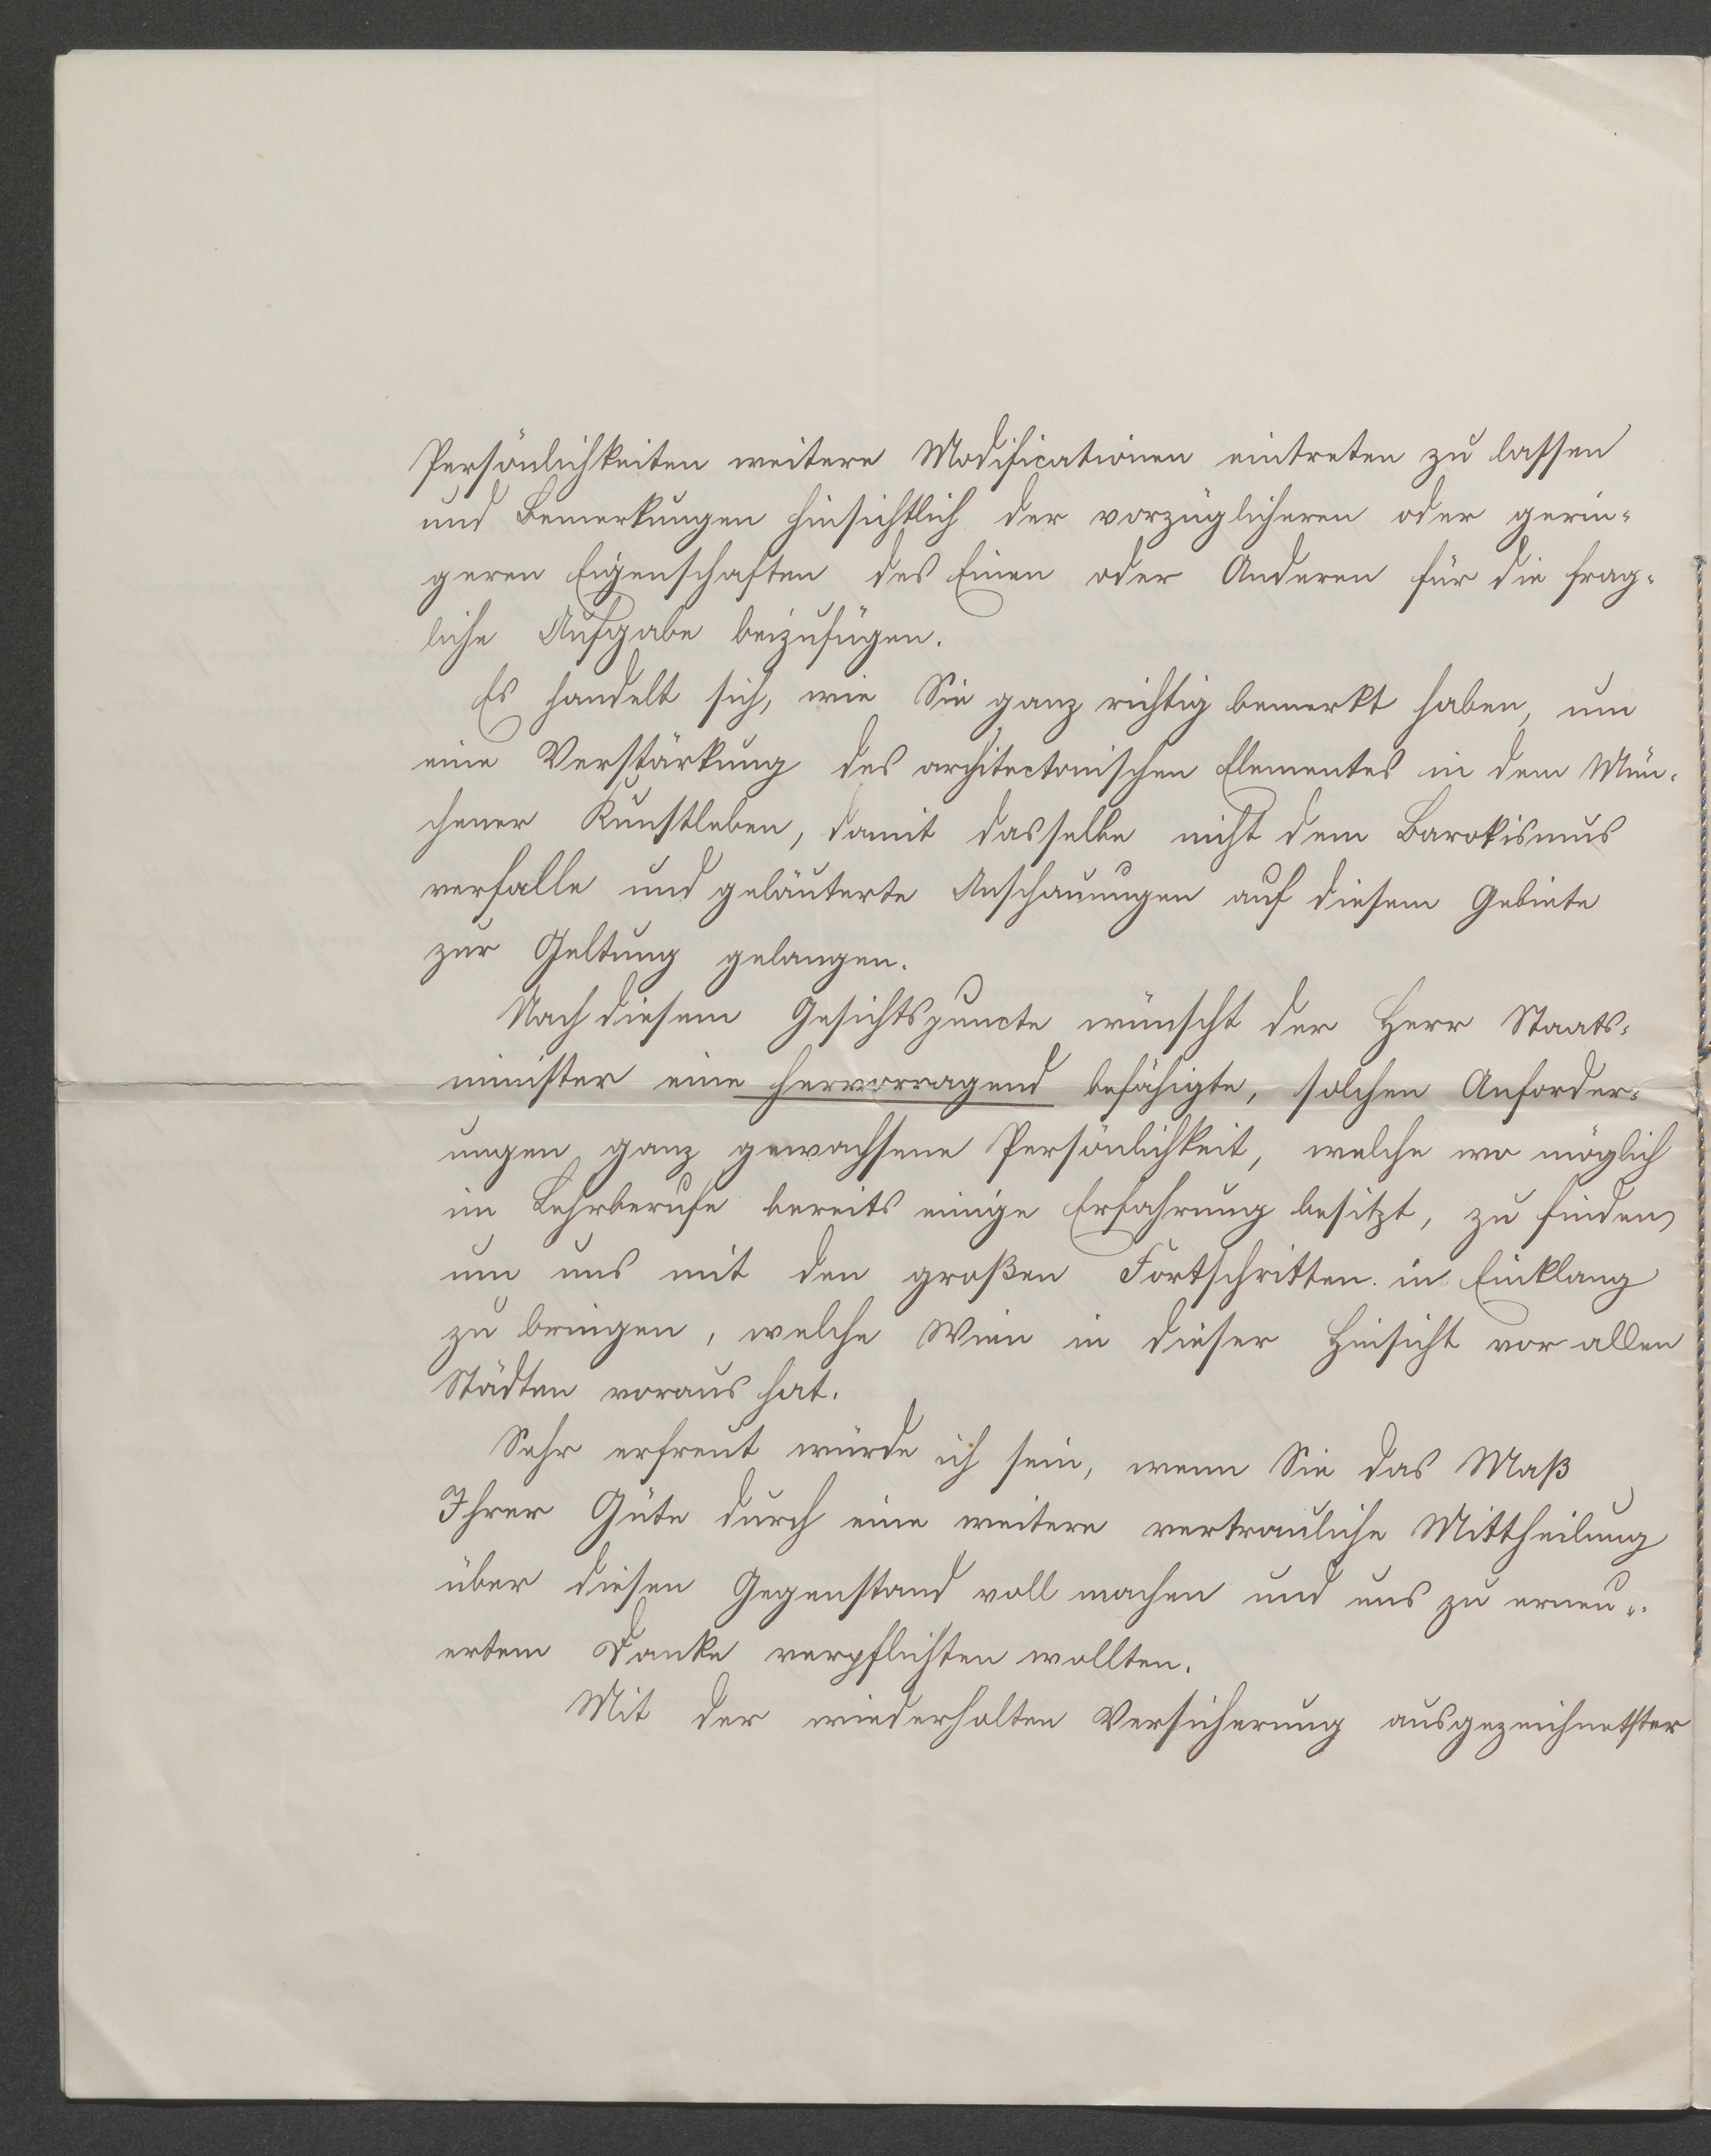 Persönlichkeiten weitere Modificationen eintreten zu lassen
und Bemerkungen hinsichtlich der vorzüglicheren oder gerin-
geren Eigenschaften des Einen oder Anderen für die frag-
liche Aufgabe beizufügen.
Es handelt sich, wie Sie ganz richtig bemerkt haben, um
eine Verstärkung des architectonischen Elementes in dem Mün-
chener Kunstleben, damit dasselbe nicht dem Barokismus
verfalle und geläuterte Anschauungen auf diesem Gebiete
zur Geltung gelangen.
Nach diesem Gesichtspuncte wünscht der Herr Staats-
minister eine hervorragend befähigte, solchen Anforder-
ungen ganz gewachsene Persönlichkeit, welche wo möglich
im Lehrberufe bereits einige Erfahrung besitzt, zu finden,
um uns mit den großen Fortschritten in Einklang
zu bringen, welche Wien in dieser Hinsicht vor allen
Städten voraus hat.
Sehr erfreut würde ich sein, wenn Sie das Maß
Ihrer Güte durch eine weitere vertrauliche Mittheilung
über diesen Gegenstand voll machen und uns zu erneu-
ertem Danke verpflichten wollten.
Mit der wiederholten Versicherung ausgezeichnetster